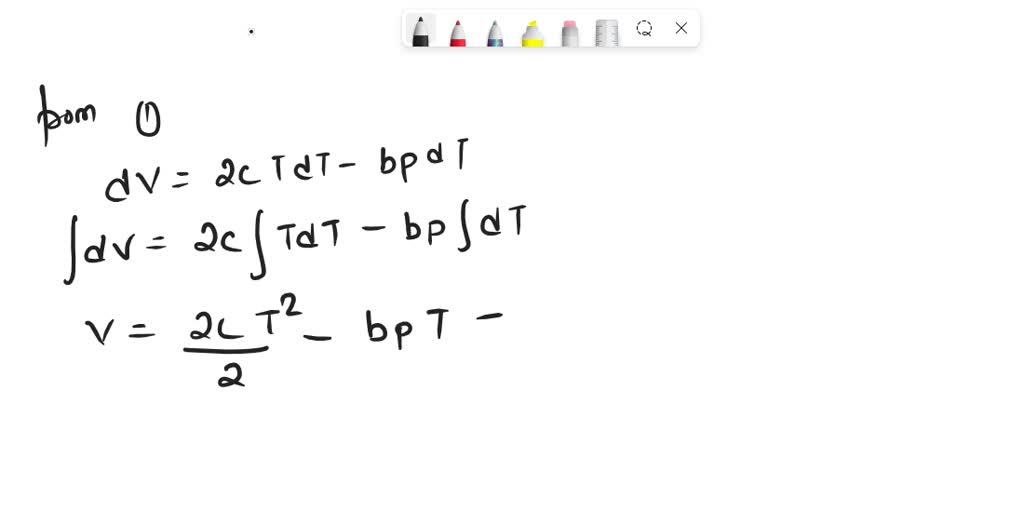 from ①
dV = 2c T dT - bp dT
∫dV = 2c ∫ T dT - bp ∫ dT
V = 2c T² / 2 - bp T -